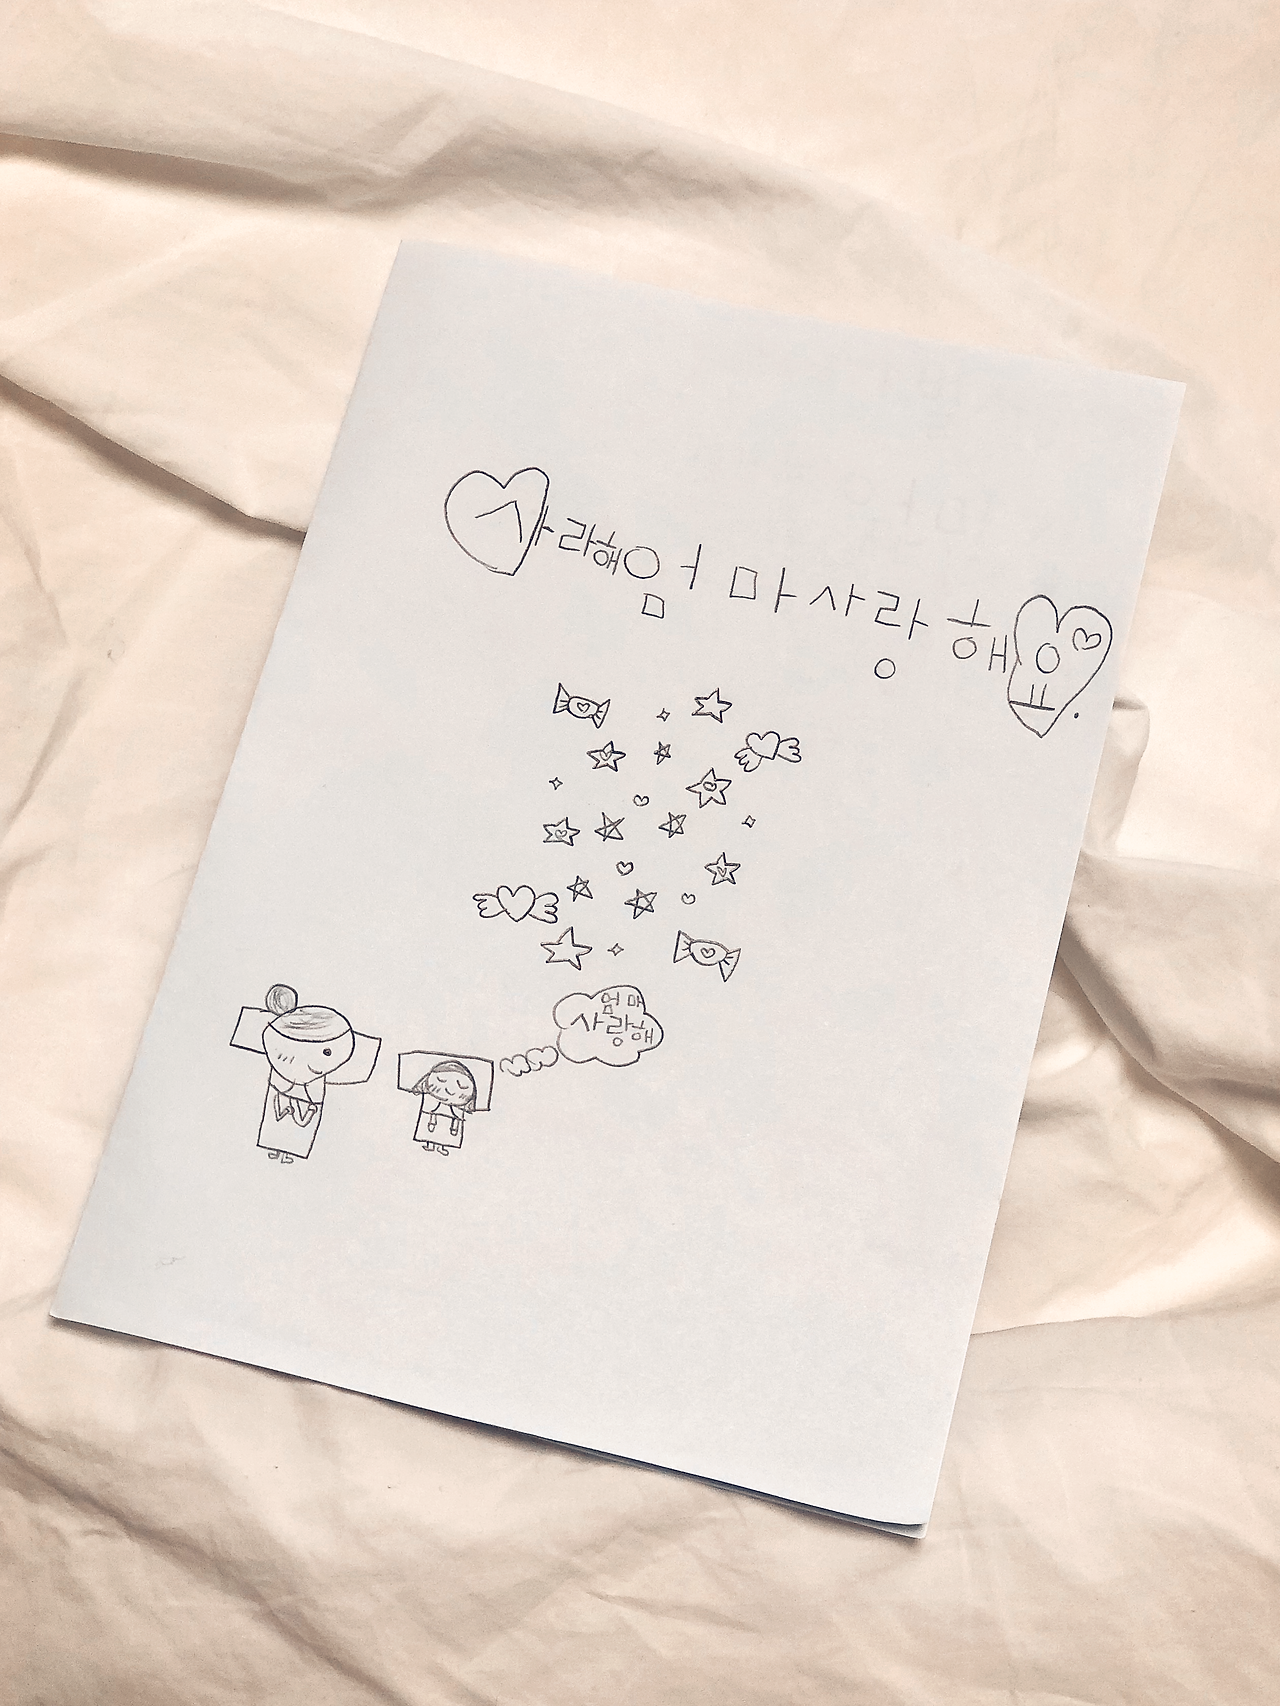 사라해엄마사랑해요.
엄마
사랑해